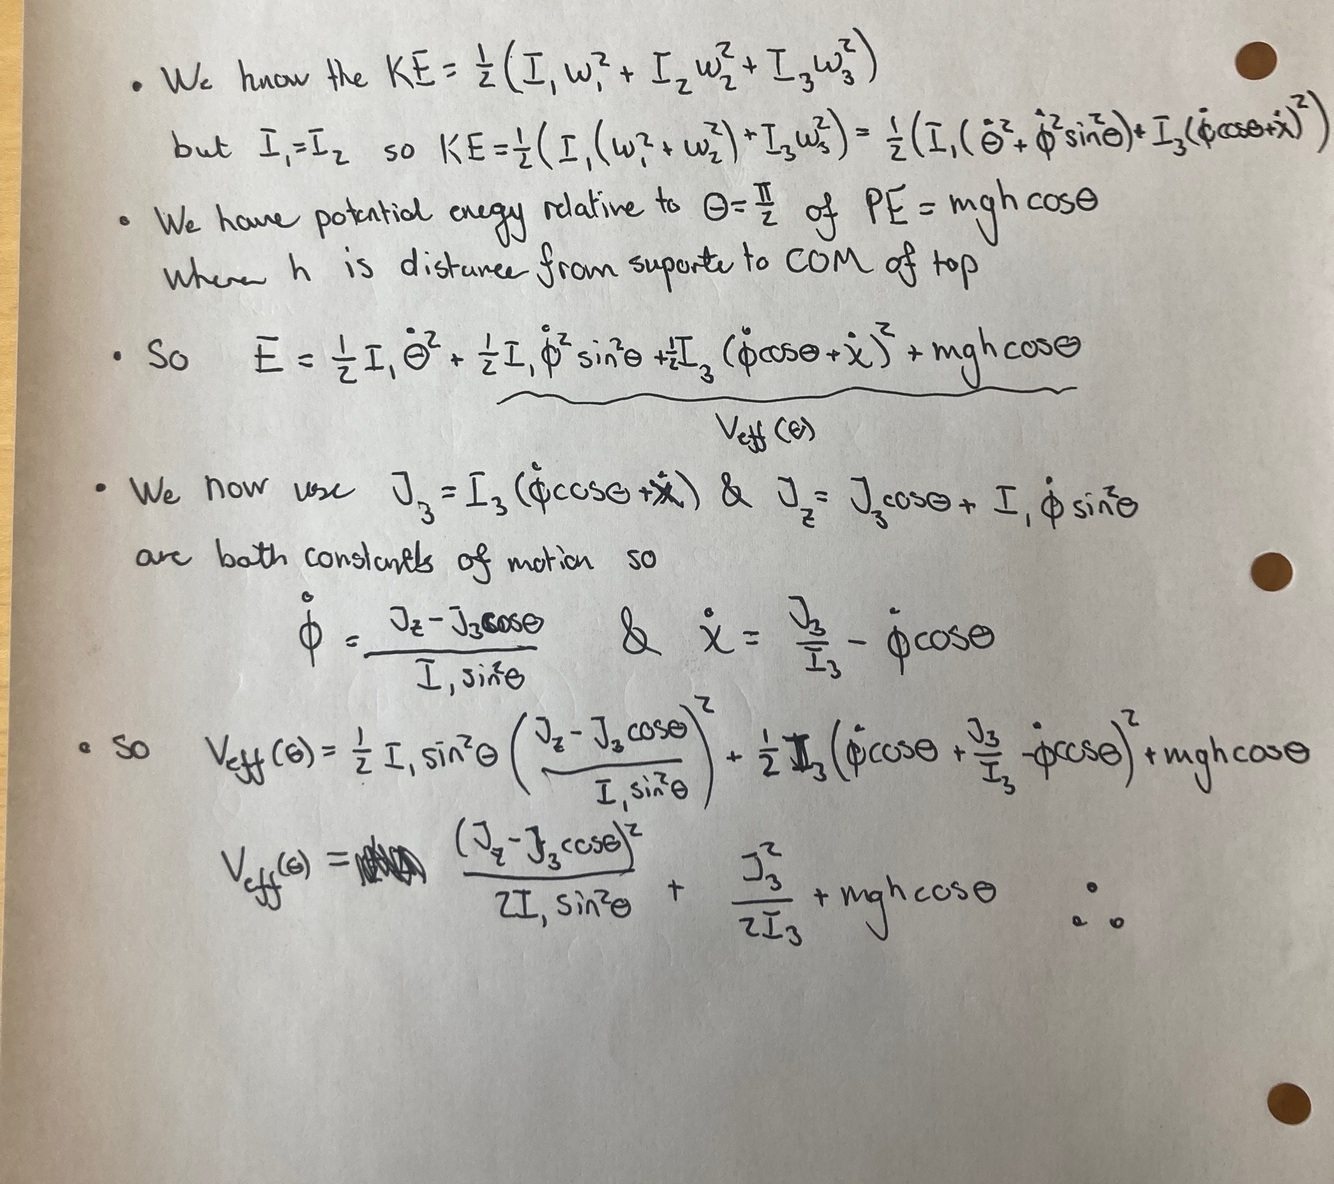 • We know the KE = ½(I₁ω₁² + I₂ω₂² + I₃ω₃²)
but I₁=I₂ so KE=½(I₁(ω₁²+ω₂²)+I₃ω₃²) = ½(I₁(θ̇²+φ̇²sin²θ)+I₃(φ̇cosθ+χ̇)²)
• We have potential enegy relative to θ=π/2 of PE = mgh cosθ
where h is distance from suporte to COM of top
• So E = ½I₁θ̇² + ½I₁φ̇²sin²θ +½I₃(φ̇cosθ+χ̇)² + mgh cosθ
V_eff(θ)
• We now use J₃=I₃(φ̇cosθ+χ̇) & J_z = J₃cosθ + I₁φ̇sin²θ
are both constants of motion so
φ̇ = (J_z-J₃cosθ)/(I₁sin²θ) & χ̇ = J₃/I₃ - φ̇cosθ
• so V_eff(θ) = ½I₁sin²θ((J_z-J₃cosθ)/(I₁sin²θ))² + ½I₃(φ̇cosθ+J₃/I₃-φ̇cosθ)²+mgh cosθ
V_eff(θ) = (J_z-J₃cosθ)²/(2I₁sin²θ) + J₃²/(2I₃) + mgh cosθ ∴